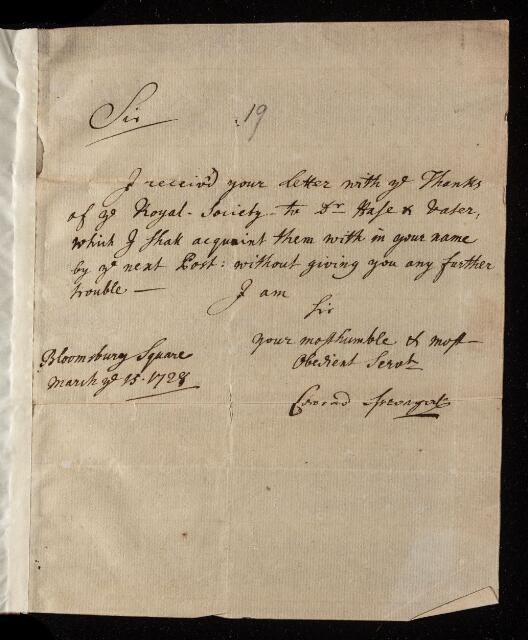 Sir
19
I receiv'd your letter with ye Thanks
of ye Royal-Society to Dr Hase & Vater,
which I shall acquaint them with in your name
by ye next Post: without giving you any further
trouble — I am
Sir
your most humble & most
Obedient Servt
Bloomsbury Square
March ye 15. 1728
Conrad